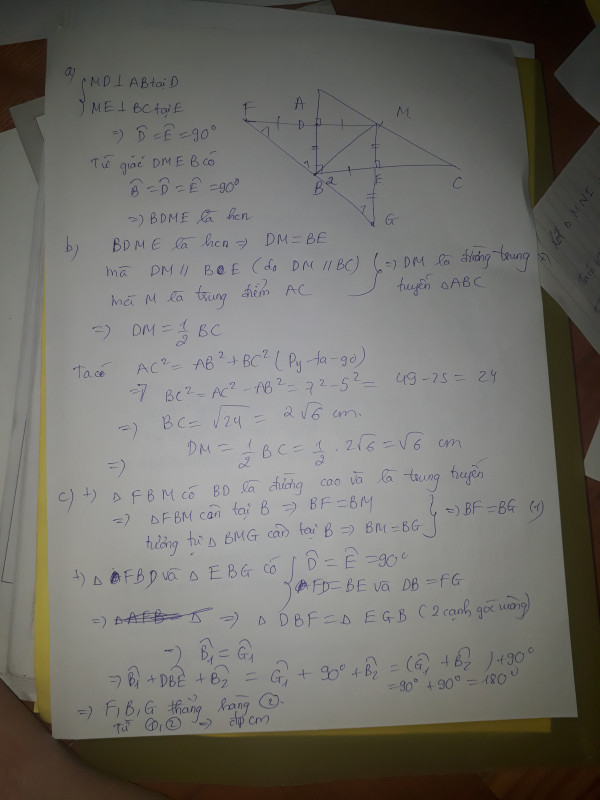 a) { MD ⊥ AB tại D
ME ⊥ BC tại E
=> D̂ = Ê = 90°
Tứ giác DMEB có
B̂ = D̂ = Ê = 90°
=> BDME là hcn
A
F
D
M
1
B
2
E
C
1
G
b) BDME là hcn => DM = BE
mà DM // BE (do DM // BC)
mà M là trung điểm AC } => DM là đường trung tuyến △ABC
=> DM = 1/2 BC
Ta có AC² = AB² + BC² (Py-ta-go)
=> BC² = AC² - AB² = 7² - 5² = 49 - 25 = 24
=> BC = √24 = 2√6 cm.
=> DM = 1/2 BC = 1/2 . 2√6 = √6 cm
c) +) △ FBM có BD là đường cao và là trung tuyến
=> △FBM cân tại B => BF = BM
tương tự △ BMG cân tại B => BM = BG } => BF = BG (1)
+) △ FBD và △ EBG có { D̂ = Ê = 90°
FD = BE và DB = FG
=> △ DBF = △ EGB (2 cạnh góc vuông)
=> B̂₁ = Ĝ₁
=> B̂₁ + DBE + B̂₂ = Ĝ₁ + 90° + B̂₂ = (Ĝ₁ + B̂₂) + 90°
= 90° + 90° = 180°
=> F, B, G thẳng hàng ②.
Từ ①, ② => đpcm